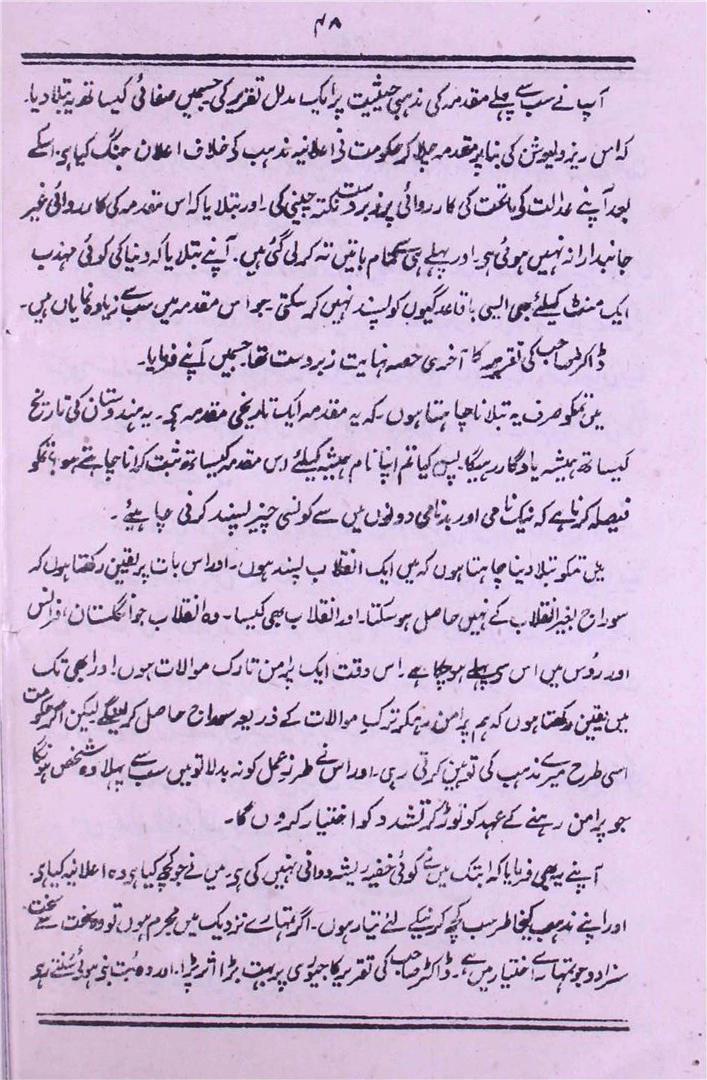 ۴۸
آپ نے سب سے پہلے مقدمہ کی مذہبی حیثیت پر ایک مدلل تقریر کی جسمیں صفائی کیساتھ یہ بتلا دیا۔
کہ اس ریزولیوشن کی بنا پر مقدمہ چلا کر حکومت نے اعلانیہ مذہب کے خلاف اعلان جنگ کیا ہی۔ اسکے
بعد آپنے عدالت کی ماتحت کی کارروائی پر زبردست نکتہ چینی کی۔ اور بتلایا کہ اس مقدمہ کی کارروائی غیر
جانبدارانہ نہیں ہوئی ہی۔ اور پہلے ہی سے تمام باتیں تہ کر لی گئی ہیں۔ آپنے بتلایا کہ دنیا کی کوئی مہذب
ایک منٹ کیلئے بھی ایسی باقاعدگیوں کو پسند نہیں کر سکتی۔ جو اس مقدمہ میں سب سے زیادہ نمایاں ہیں۔
ڈاکٹر صاحب کی تقریر کا آخری حصہ نہایت زبردست تھا جسمیں آپنے فرمایا۔
میں تمکو صرف یہ بتلانا چاہتا ہوں۔ کہ یہ مقدمہ ایک تاریخی مقدمہ ہی۔ یہ ہندوستان کی تاریخ
کیساتھ ہمیشہ یادگار رہیگا۔ پس کیا تم اپنا نام ہمیشہ کیلئے اس مقدمہ کیساتھ ثبت کرانا چاہتے ہو؟ تمکو
فیصلہ کرنا ہے کہ نیک نامی اور بدنامی دونوں میں سے کونسی چیز پسند کرنی چاہیئے۔
میں تمکو بتلا دینا چاہتا ہوں کہ میں ایک انقلاب پسند ہوں۔ اور اس بات پر یقین رکھتا ہوں کہ
سوراج بغیر انقلاب کے نہیں حاصل ہو سکتا۔ اور انقلاب بھی کیسا۔ وہ انقلاب جو انگلستان، فرانس
اور رُوس میں اس سی پہلے ہو چکا ہے۔ اس وقت ایک پرامن تارک موالات ہوں۔ اور ابھی تک
میں یقین رکھتا ہوں کہ ہم پرامن رہکر ترک موالات کے ذریعہ سوراج حاصل کر لینگے لیکن اگر حکومت
اسی طرح میرے مذہب کی توہین کرتی رہی۔ اور اس نے طرز عمل کو نہ بدلا تو میں سب سے پہلا وہ شخص ہونگا
جو پرامن رہنے کے عہد کو توڑ کر تشدد کو اختیار کروں گا۔
آپنے یہ بھی فرمایا کہ ابتک میں نے کوئی خفیہ ریشہ دوانی نہیں کی ہی۔ میں نے جو کچھ کیا ہی وہ اعلانیہ کیا ہی۔
اور اپنے مذہب کیخاطر سب کچھ کرنیکے لئے تیار ہوں۔ اگر تمہارے نزدیک میں مجرم ہوں تو وہ سخت سے سخت
سزا دو جو تمہارے اختیار میں ہے۔ ڈاکٹر صاحب کی تقریر کا جیوری پر بہت بڑا اثر پڑا۔ اور وہ بت بنی ہوئی سُنتے رہی